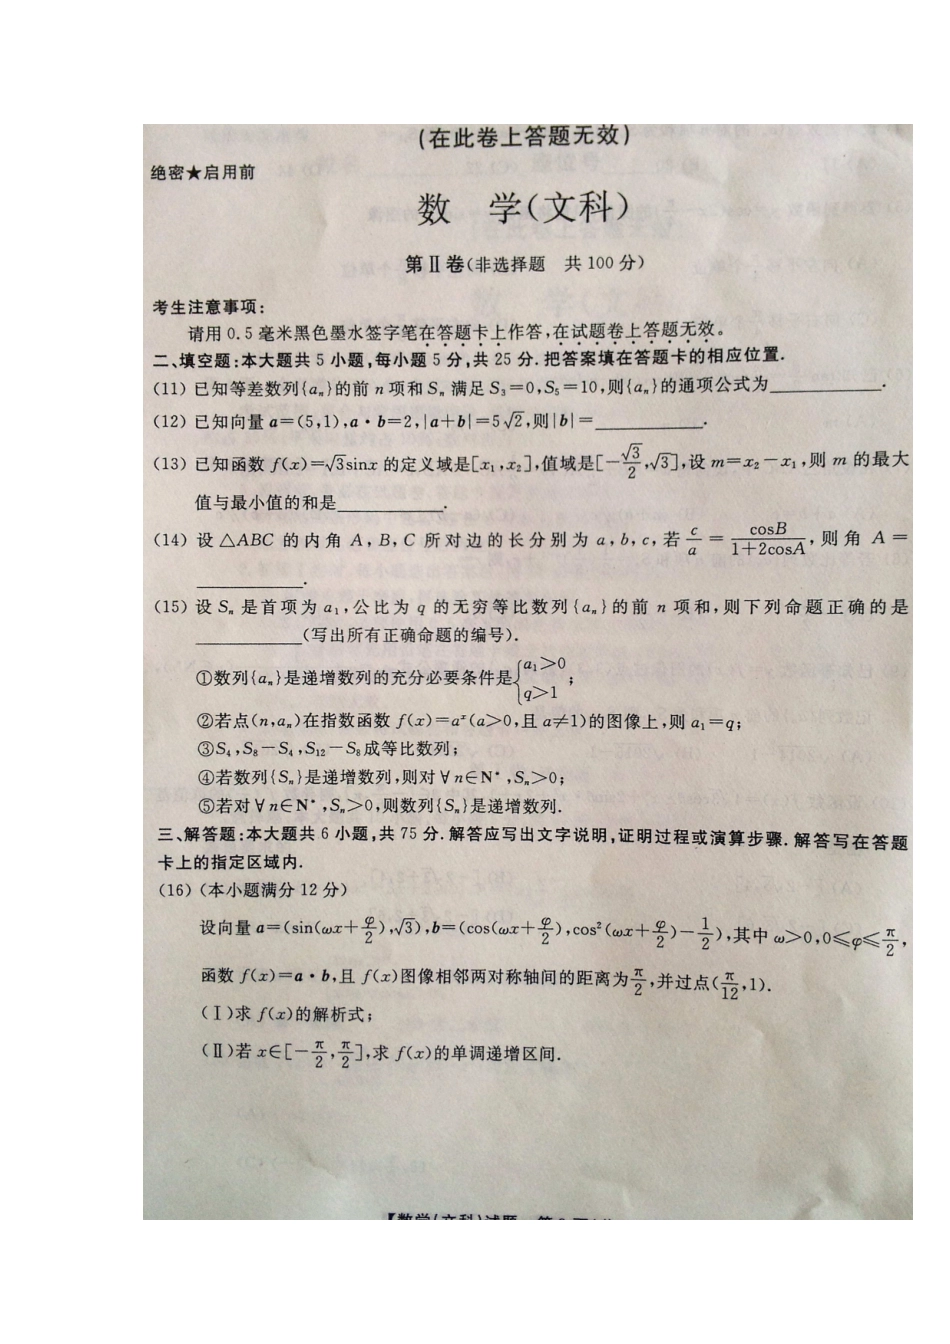 (在此卷上答题无效)
绝密★启用前
数 学(文科)
第Ⅱ卷(非选择题 共100分)
考生注意事项:
请用0.5毫米黑色墨水签字笔在答题卡上作答,在试题卷上答题无效。
二、填空题:本大题共5小题,每小题5分,共25分.把答案填在答题卡的相应位置.
(11) 已知等差数列{aₙ}的前n项和Sₙ满足S₃=0,S₅=10,则{aₙ}的通项公式为________.
(12) 已知向量a=(5,1),a·b=2,|a+b|=5√2,则|b|=________.
(13) 已知函数f(x)=√3sinx的定义域是[x₁,x₂],值域是[-√3/2,√3],设m=x₂-x₁,则m的最大
值与最小值的和是________.
(14) 设△ABC的内角A,B,C所对边的长分别为a,b,c,若c/a=cosB/(1+2cosA),则角A=
________.
(15) 设Sₙ是首项为a₁,公比为q的无穷等比数列{aₙ}的前n项和,则下列命题正确的是
________(写出所有正确命题的编号).
①数列{aₙ}是递增数列的充分必要条件是{a₁>0 q>1;
②若点(n,aₙ)在指数函数f(x)=aˣ(a>0,且a≠1)的图像上,则a₁=q;
③S₄,S₈-S₄,S₁₂-S₈成等比数列;
④若数列{Sₙ}是递增数列,则对∀n∈N*,Sₙ>0;
⑤若对∀n∈N*,Sₙ>0,则数列{Sₙ}是递增数列.
三、解答题:本大题共6小题,共75分.解答应写出文字说明,证明过程或演算步骤.解答写在答题
卡上的指定区域内.
(16) (本小题满分12分)
设向量a=(sin(ωx+φ/2),√3),b=(cos(ωx+φ/2),cos²(ωx+φ/2)-1/2),其中ω>0,0≤φ≤π/2,
函数f(x)=a·b,且f(x)图像相邻两对称轴间的距离为π/2,并过点(π/12,1).
(Ⅰ)求f(x)的解析式;
(Ⅱ)若x∈[-π/2,π/2],求f(x)的单调递增区间.